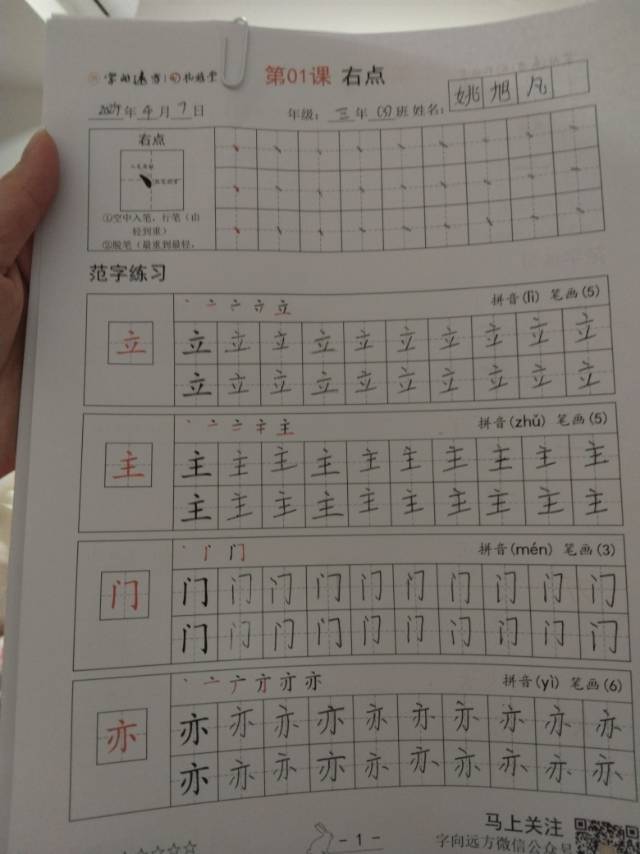 第01课 右点
年 4月7日 年级：三年(5)班 姓名：姚旭凡
右点
①空中入笔，行笔（由
轻到重）
②脱笔（最重到最轻，
范字练习
丶 亠 亠 立 立 拼音(lì) 笔画(5)
立 立 立 立 立 立 立 立 立 立 立
立 立 立 立 立 立 立 立 立 立
主 拼音(zhǔ) 笔画(5)
主 主 主 主 主 主 主 主 主 主 主
主 主 主 主 主 主 主 主 主 主
门 拼音(mén) 笔画(3)
门 门 门 门 门 门 门 门 门 门 门
门 门 门 门 门 门 门 门 门 门
亦 拼音(yì) 笔画(6)
亦 亦 亦 亦 亦 亦 亦 亦 亦 亦 亦
亦 亦 亦 亦 亦 亦 亦 亦 亦 亦
马上关注
-1- 字向远方微信公众号